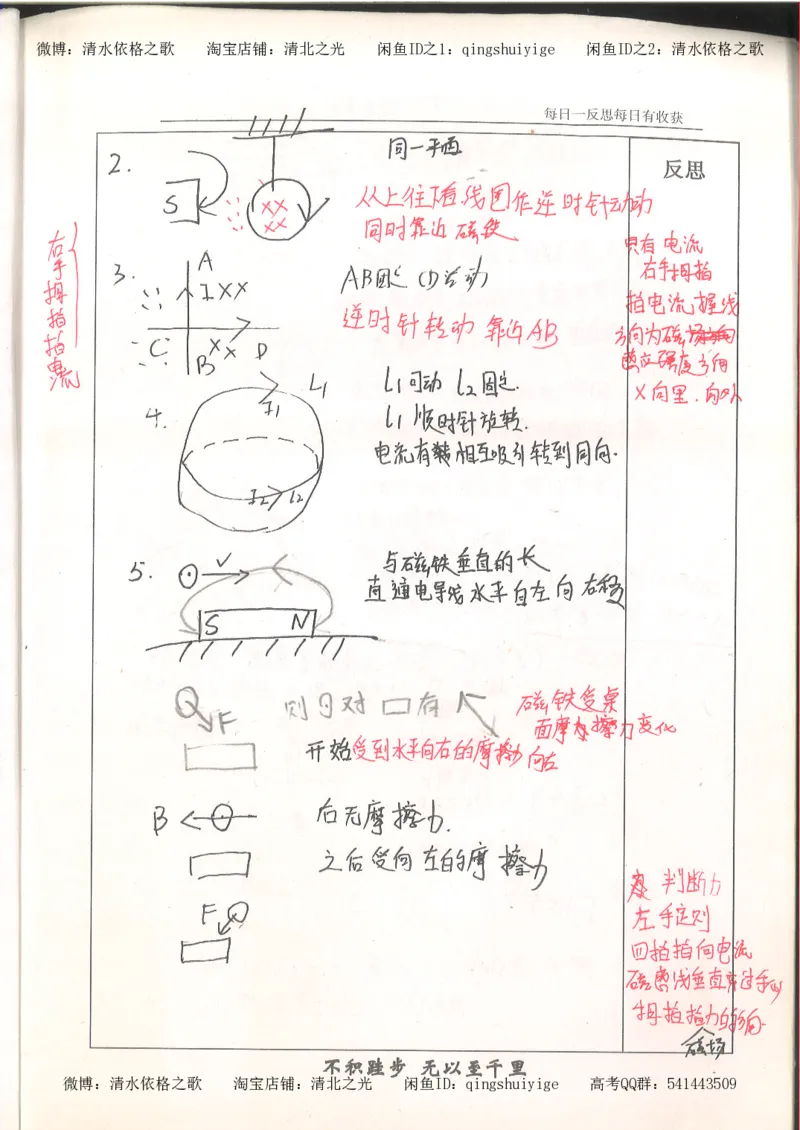 微博：清水依格之歌 淘宝店铺：清北之光 闲鱼ID之1：qingshuiyige 闲鱼ID之2：清水依格之歌
每日一反思每日有收获
反思
2.
同一平面
S
××
××
从上往下看线圈作逆时针运动
同时靠近磁铁
右手拇指指电流
3.
A
I
××
C
B
××
D
AB固定 CD运动
逆时针转动 靠近AB
只有电流
右手拇指
指电流 握线
方向为磁场
强度方向
×向里 ·向外
4.
L1
I1
I2
L2
L1可动 L2固定
L1顺时针旋转.
电流有 相互吸引转到同向.
5.
V
S
N
与磁铁垂直的长
直通电导线水平自左向右移
F
则 对 有
磁铁受桌
面摩擦力变化
开始受到水平向右的摩擦力 向左
B
后无摩擦力.
之后受向左的摩擦力
F
判断力
左手定则
四指指向电流
磁感线垂直穿过手心
拇指指力的方向.
磁场
不积跬步 无以至千里
微博：清水依格之歌 淘宝店铺：清北之光 闲鱼ID：qingshuiyige 高考QQ群：541443509